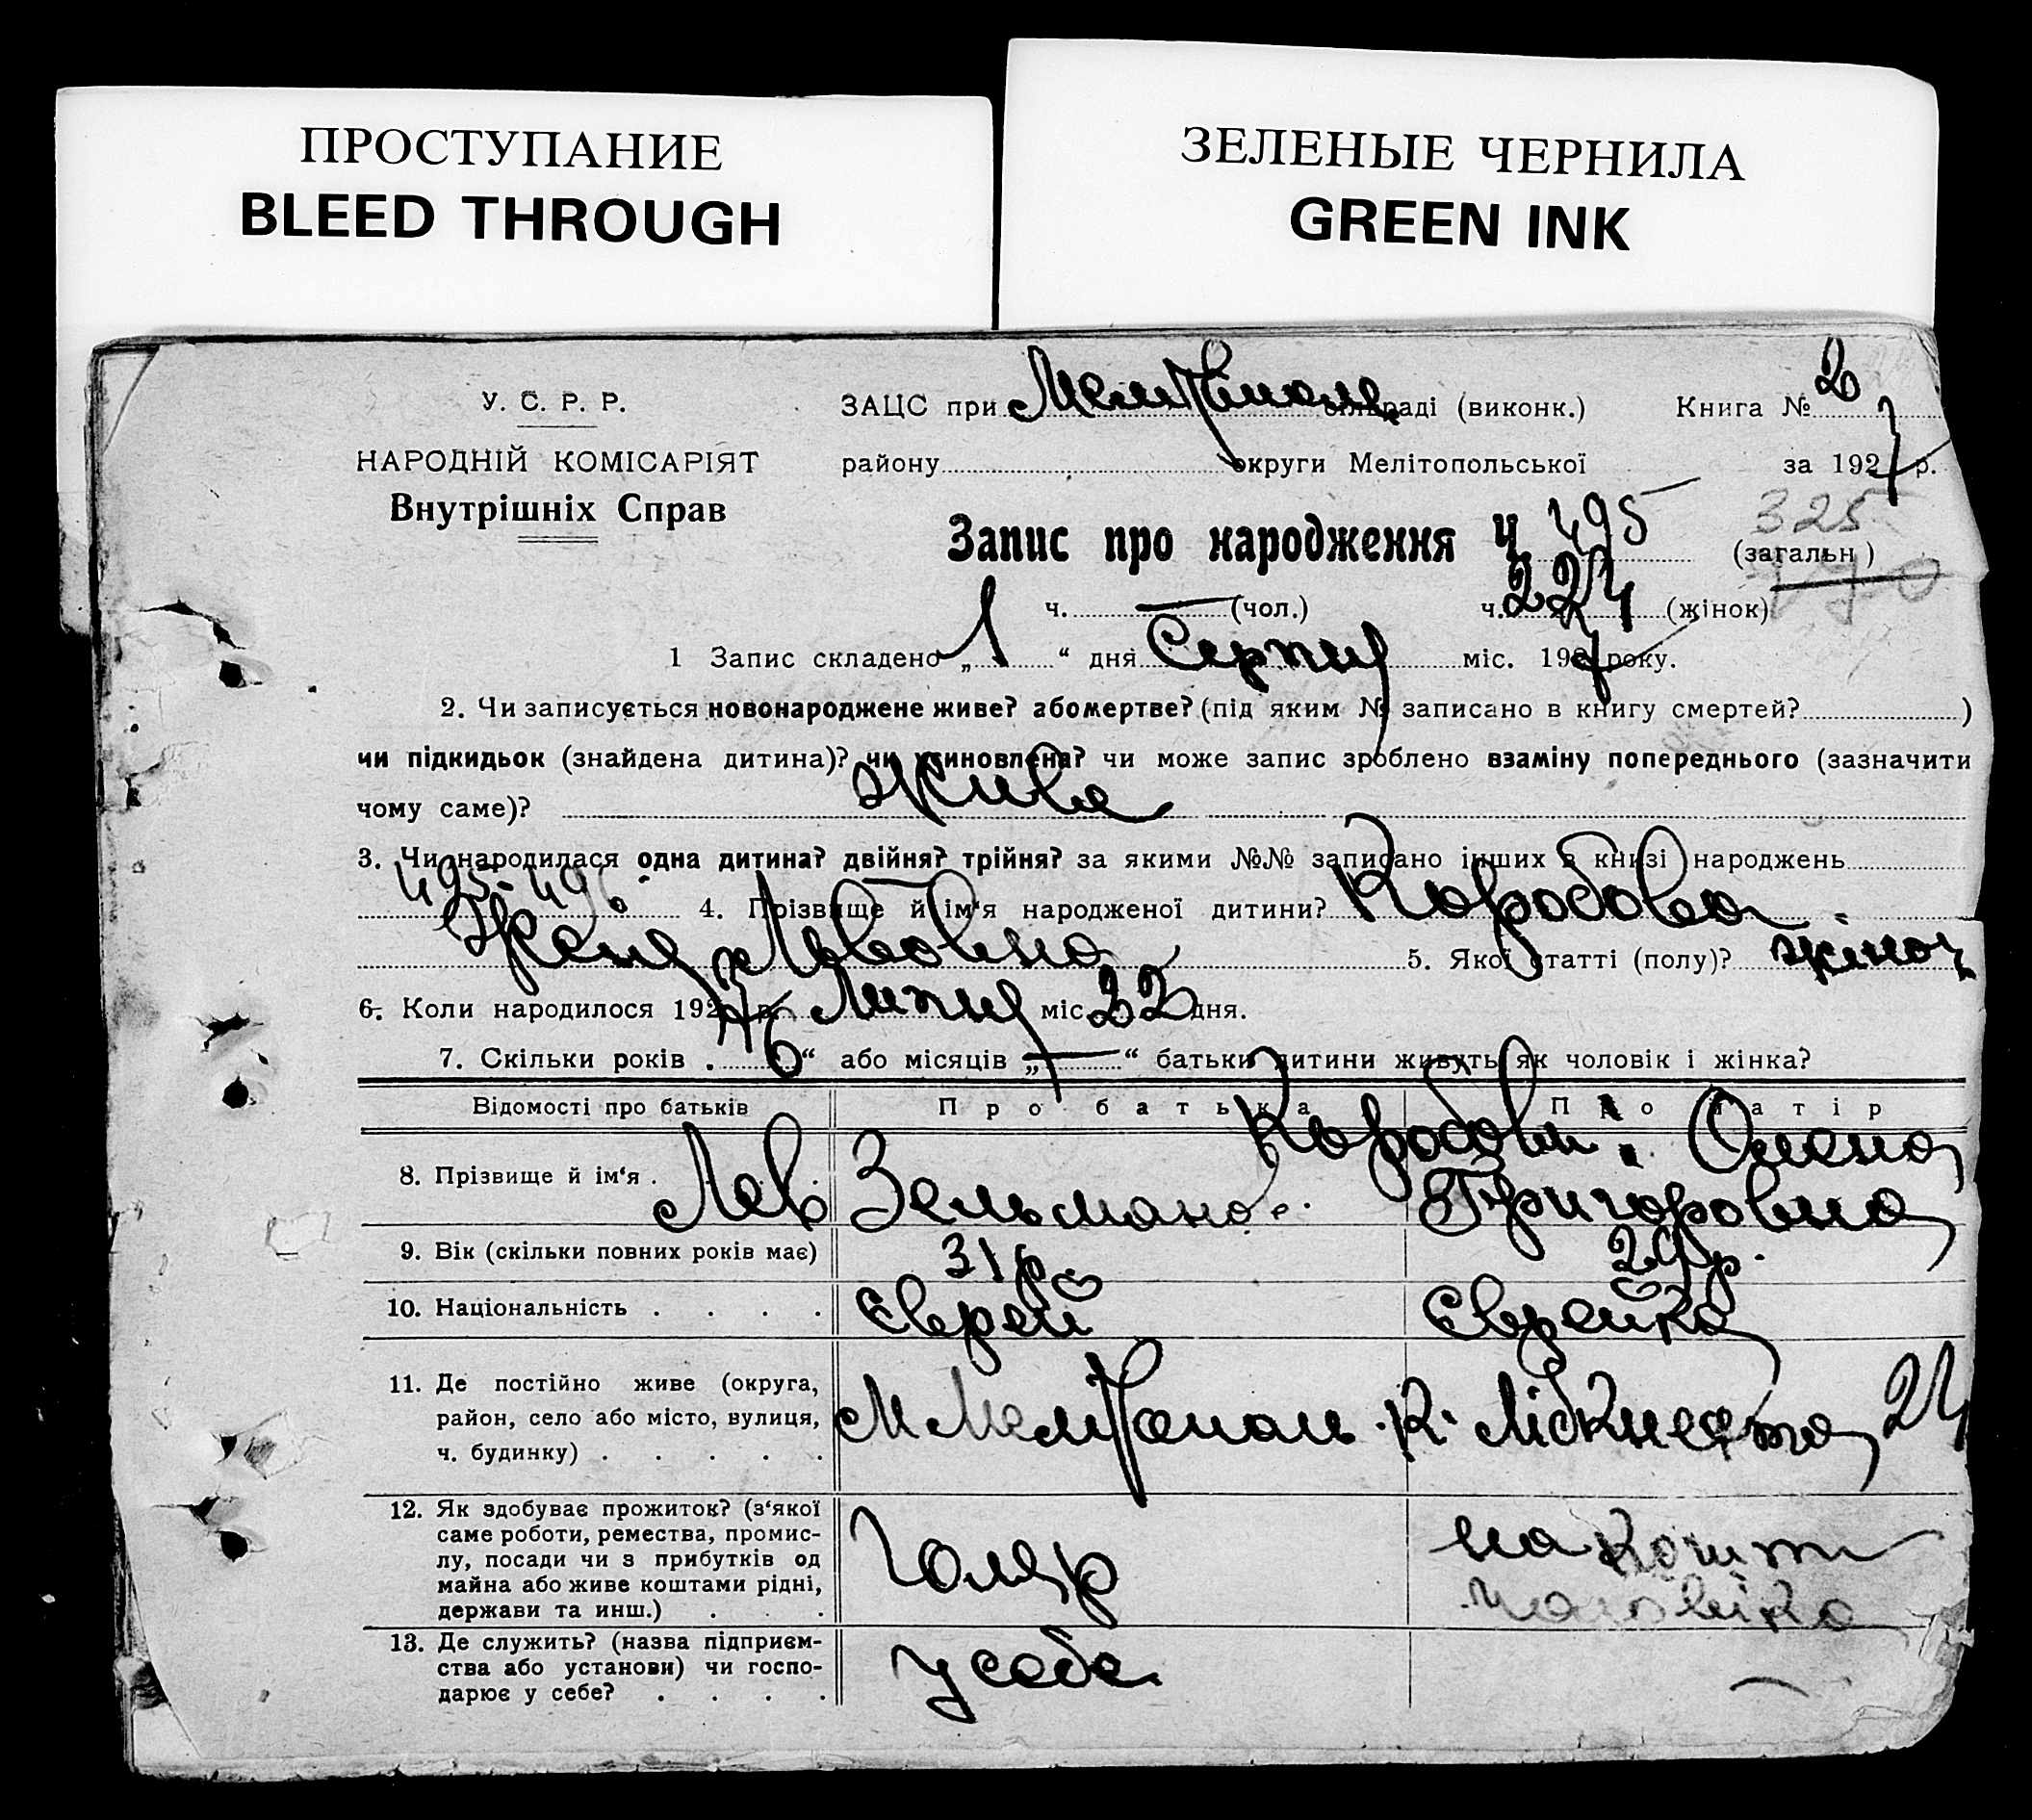 ПРОСТУПАНИЕ
BLEED THROUGH
ЗЕЛЕНЫЕ ЧЕРНИЛА
GREEN INK
У. С. Р. Р.
НАРОДНІЙ КОМІСАРІЯТ
Внутрішніх Справ
ЗАЦС при (виконк.) Книга № 2
району округи Мелітопольської за 1927 р.
Запис про народження Ч 495 325 (загальн)
ч. — (чол.) ч. 224 (жінок)
1 Запис складено „1“ дня Серпня міс. 1927 року.
2. Чи записується новонароджене живе? або мертве? (під яким № записано в книгу смертей? )
чи підкидьок (знайдена дитина)? чи усиновлена? чи може запис зроблено взаміну попереднього (зазначити
чому саме)? живе
3. Чи народилася одна дитина? двійня? трійня? за якими №№ записано інших в книзі народжень
495-496. 4. Прізвище й ім'я народженої дитини? Коробова.
Женя Львовна 5. Якої статті (полу)? жіноч
6. Коли народилося 1927 р. Липня міс. 22 дня.
7. Скільки років „6“ або місяців „—“ батьки дитини живуть як чоловік і жінка?
Відомості про батьків Про батька Про матір
Коробови: Олена
8. Прізвище й ім'я . Лев Зельманов. Григоровна
9. Вік (скільки повних років має) 31р. 29р.
10. Національність . . . . Єврей Єврейка
11. Де постійно живе (округа,
район, село або місто, вулиця,
ч. будинку) . . . . . М Мелітополь К. Лібкнехта 24
12. Як здобуває прожиток? (з'якої
саме роботи, ремества, промис-
лу, посади чи з прибутків од
майна або живе коштами рідні,
держави та инш.) . . . Голяр на кошти
чоловіка
13. Де служить? (назва підприєм-
ства або установи) чи госпо-
дарює у себе? . . . . у себе —